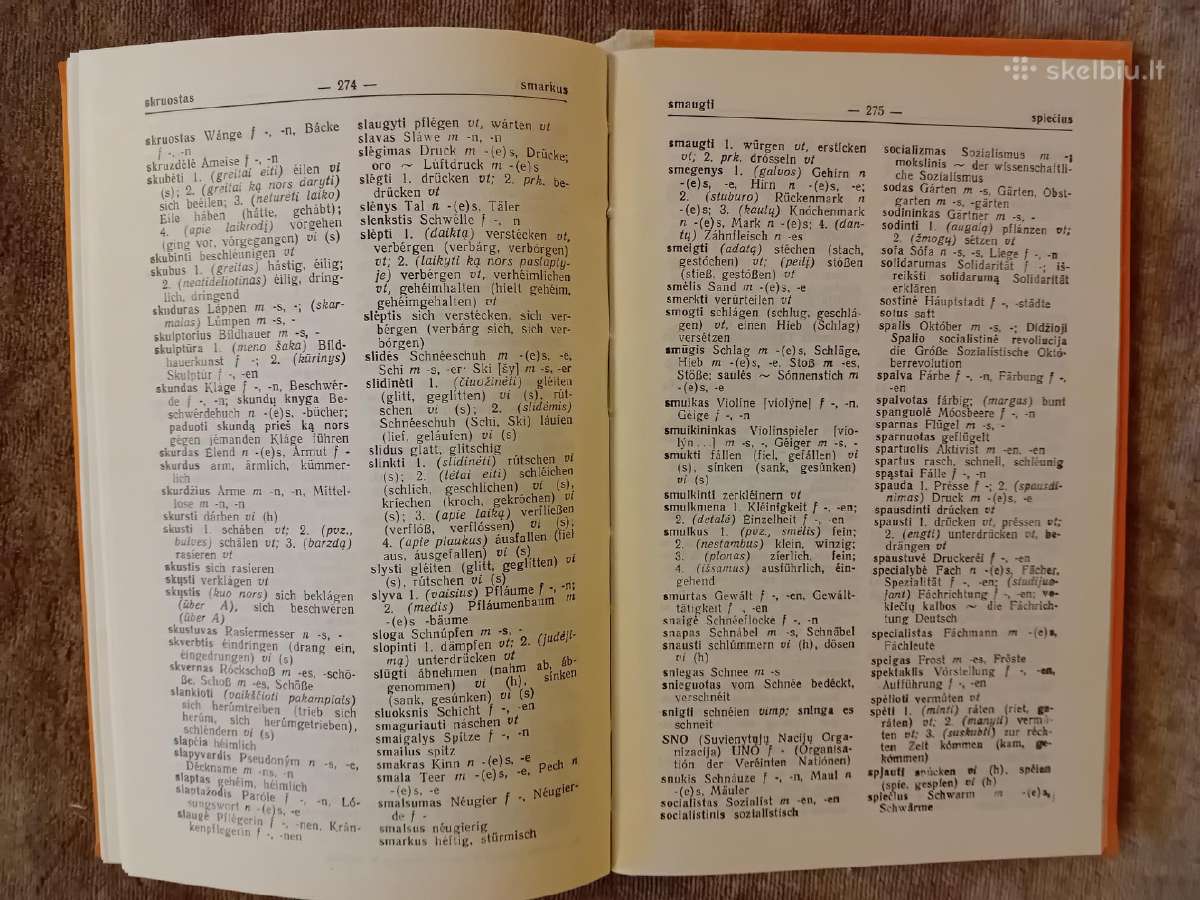 skruostas — 274 — smarkus
skruostas Wánge f -, -n, Bácke
f -, -n
skruzdėlė Ámeise f -, -n
skubėti 1. (greitai eiti) éilen vi
(s); 2. (greitai ką nors daryti)
sich beéilen; 3. (neturėti laiko)
Eile háben (hátte, gehábt);
4. (apie laikrodį) vórgehen
(ging vor, vórgegangen) vi (s)
skubinti beschléunigen vt
skubus 1. (greitas) hástig, éilig;
2. (neatidėliotinas) éilig, dring-
lich, dringend
skuduras Láppen m -s, -; (skar-
malas) Lúmpen m -s, -
skulptorius Bíldhauer m -s, -
skulptūra 1. (meno šaka) Bíld-
hauerkunst f -; 2. (kūrinys)
Skulptúr f -, -en
skundas Kláge f -, -n, Beschwér-
de f -, -n; skundų knyga Be-
schwérdebuch n -(e)s, -bücher;
paduoti skundą prieš ką nors
gégen jémanden Kláge führen
skurdas Élend n -(e)s, Ármut f -
skurdus arm, ärmlich, kümmer-
lich
skurdžius Árme m -n, -n, Míttel-
lose m -n, -n
skursti dárben vi (h)
skusti 1. scháben vt; 2. (pvz.,
bulves) schälen vt; 3. (barzdą)
rasíeren vt
skustis sich rasíeren
skųsti verklágen vt
skųstis (kuo nors) sich beklágen
(über A), sich beschwéren
(über A)
skustuvas Rasíermesser n -s, -
skverbtis éindringen (drang ein,
eingedrungen) vi (s)
skvernas Róckschoß m -es, -schö-
ße, Schoß m -es, Schöße
slankioti (vaikščioti pakampiais)
sich herúmtreiben (trieb sich
herúm, sich herúmgetrieben),
schléndern vi (s)
slapčia héimlich
slapyvardis Pseudoným n -s, -e,
Déckname m -ns, -n
slaptas gehéim, héimlich
slaptažodis Paróle f -, -n, Ló-
sungswort n -(e)s, -e
slaugė Pflégerin f -, -nen, Krán-
kenpflegerin f -, -nen
slaugyti pflégen vt, wárten vt
slavas Sláwe m -n, -n
slėgimas Druck m -(e)s, Drücke;
oro ~ Lúftdruck m -(e)s
slėgti 1. drücken vt; 2. prk. be-
drücken vt
slėnys Tal n -(e)s, Täler
slenkstis Schwélle f -, -n
slėpti 1. (daiktą) verstécken vt,
verbérgen (verbárg, verbórgen)
vt; 2. (laikyti ką nors paslapty-
je) verbérgen vt, verhéimlichen
vt, gehéimhalten (hielt gehéim,
gehéimgehalten) vt
slėptis sich verstécken, sich ver-
bérgen (verbárg sich, sich ver-
bórgen)
slidės Schnéeschuh m -(e)s, -e,
Schi m -s, -er Ski [šy] m -s, -er
slidinėti 1. (čiuožinėti) gléiten
(glitt, geglítten) vi (s), rút-
schen vi (s); 2. (slidėmis)
Schnéeschuh (Schi, Ski) láufen
(lief, geláufen) vi (s)
slidus glatt, glítschig
slinkti 1. (slidinėti) rútschen vi
(s); 2. (lėtai eiti) schléichen
(schlich, geschlíchen) vi (s),
kríechen (kroch, gekróchen) vi
(s); 3. (apie laiką) verflíeßen
(verflóß, verflóssen) vi (s);
4. (apie plaukus) áusfallen (fiel
aus, áusgefallen) vi (s)
slysti gléiten (glitt, geglítten) vi
(s), rútschen vi (s)
slyva 1. (vaisius) Pfláume f -, -n;
2. (medis) Pfláumenbaum m
-(e)s -bäume
sloga Schnúpfen m -s, -
slopinti 1. dämpfen vt; 2. (judėji-
mą) unterdrücken vt
slūgti ábnehmen (nahm ab, áb-
genommen) vi (h), sínken
(sank, gesúnken) vi (s)
sluoksnis Schicht f -, -en
smaguriauti náschen vt
smaigalys Spítze f -, -n
smailus spitz
smakras Kinn n -(e)s, -e
smala Teer m -(e)s, -e, Pech n
-(e)s, -e
smalsumas Néugier f -, Néugier-
de f -
smalsus néugierig
smarkus héftig, stürmisch
smaugti — 275 — spiečius
smaugti 1. würgen vt, erstícken
vt; 2. prk. drósseln vt
smegenys 1. (galvos) Gehírn n
-(e)s, -e, Hirn n -(e)s, -e;
2. (stuburo) Rückenmark n
-(e)s; 3. (kaulų) Knóchenmark
n -(e)s, Mark n -(e)s; 4. (dan-
tų) Záhnfleisch n -es
smeigti (adatą) stéchen (stach,
gestóchen) vt; (peilį) stóßen
(stieß, gestóßen) vt
smėlis Sand m -(e)s, -e
smerkti verúrteilen vt
smogti schlágen (schlug, geschlá-
gen) vt, einen Hieb (Schlag)
versétzen
smūgis Schlag m -(e)s, Schläge,
Hieb m -(e)s, -e, Stoß m -es,
Stöße; saulės ~ Sónnenstich m
-(e)s, -e
smuikas Violíne [violýne] f -, -n,
Géige f -, -n
smuikininkas Violínspieler [vio-
lýn...] m -s, -, Géiger m -s, -
smukti fállen (fiel, gefállen) vi
(s), sínken (sank, gesúnken)
vi (s)
smulkinti zerkléinern vt
smulkmena 1. Kléinigkeit f -, -en;
2. (detalė) Éinzelheit f -, -en
smulkus 1. (pvz., smėlis) fein;
2. (nestambus) klein, wínzig;
3. (plonas) zíerlich, fein;
4. (išsamus) áusführlich, éin-
gehend
smurtas Gewált f -, -en, Gewált-
tätigkeit f -, -en
snaigė Schnéeflocke f -, -n
snapas Schnábel m -s, Schnäbel
snausti schlúmmern vi (h), dösen
vi (h)
sniegas Schnee m -s
snieguotas vom Schnée bedéckt,
verschnéit
snigti schnéien vimp; sninga es
schneit
SNO (Suvienytųjų Nacijų Orga-
nizacija) UNO f - (Organisa-
tión der Veréinten Natiónen)
snukis Schnáuze f -, -n, Maul n
-(e)s, Mäuler
socialistas Sozialíst m -en, -en
socialistinis sozialístisch
socializmas Sozialísmus m -;
mokslinis ~ der wíssenschaftli-
che Sozialísmus
sodas Gárten m -s, Gärten, Obst-
garten m -s, -gärten
sodininkas Gärtner m -s, -
sodinti 1. (augalą) pflánzen vt;
2. (žmogų) sétzen vt
sofa Sófa n -s, -s, Líege f -, -n
solidarumas Solidarität f -; iš-
reikšti solidarumą Solidarität
erklären
sostinė Háuptstadt f -, -städte
sotus satt
spalis Október m -s, -; Didžioji
Spalio socialistinė revoliucija
die Größe Sozialístische Októ-
berrevolution
spalva Fárbe f -, -n, Färbung f -,
-en
spalvotas färbig; (margas) bunt
spanguolė Móosbeere f -, -n
sparnas Flügel m -s, -
sparnuotas geflügelt
spartuolis Aktivíst m -en, -en
spartus rasch, schnell, schléunig
spąstai Fálle f -, -n
spauda 1. Présse f -; 2. (spausdi-
nimas) Druck m -(e)s, -e
spausdinti drúcken vt
spausti 1. drücken vt, préssen vt;
2. (engti) unterdrücken vt, be-
drängen vt
spaustuvė Druckeréi f -, -en
specialybė Fach n -(e)s, Fächer,
Spezialität f -, -en; (studijuo-
jant) Fáchrichtung f -, -en; vo-
kiečių kalbos ~ die Fáchrich-
tung Deutsch
specialistas Fáchmann m -(e)s,
Fáchleute
speigas Frost m -es, Fröste
spektaklis Vórstellung f -, -en,
Áufführung f -, -en
spėlioti vermúten vt
spėti 1. (minti) ráten (riet, ge-
ráten) vt; 2. (manyti) vermú-
ten vt; 3. (suskubti) zur réch-
ten Zeit kómmen (kam, ge-
kómmen)
spjauti spúcken vi (h), spéien
(spie, gespíen) vi (h)
spiečius Schwarm m -(e)s,
Schwärme
skelbiu.lt